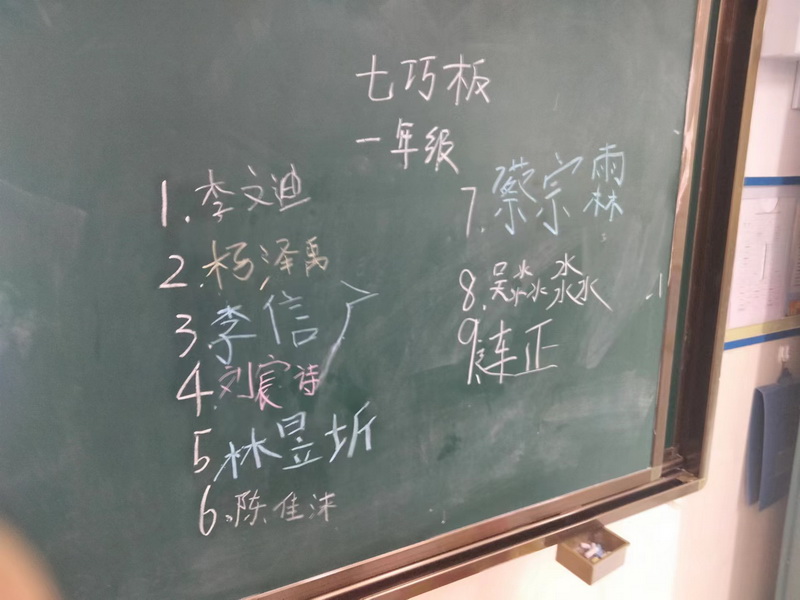 七巧板
一年级
1.李文迪
2.杨泽禹
3.李信广
4.刘宸诗
5林昱圻
6.陈佳沫
7.蔡宗霖
8.吴淼淼
9.陈正